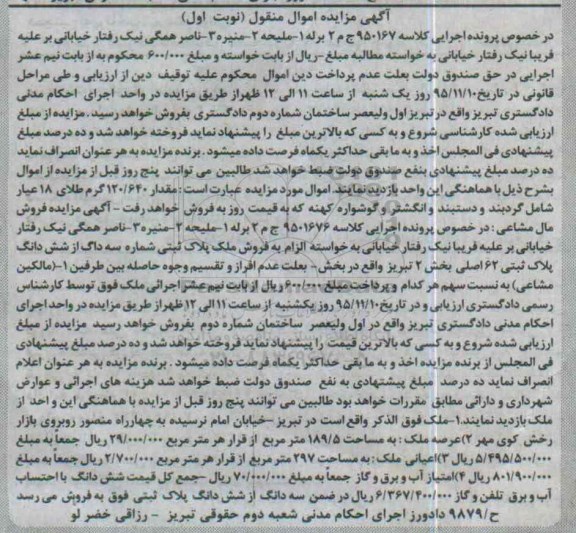 آگهی مزایده اموال منقول (نوبت اول)
در خصوص پرونده اجرایی کلاسه ۹۵۰۱۶۷ ج م ۲ برله ۱-ملیحه ۲-منیره ۳-ناصر همگی نیک رفتار خیابانی بر علیه
فریبا نیک رفتار خیابانی به خواسته مطالبه مبلغ -ریال از بابت خواسته و مبلغ ۶۰۰/۰۰۰ محکوم به از بابت نیم عشر
اجرایی در حق صندوق دولت بعلت عدم پرداخت دین اموال محکوم علیه توقیف دین از ارزیابی و طی مراحل
قانونی در تاریخ ۹۵/۱۱/۱۰ روز یک شنبه از ساعت ۱۱ الی ۱۲ ظهر از طریق مزایده در واحد اجرای احکام مدنی
دادگستری تبریز واقع در تبریز اول ولیعصر ساختمان شماره دوم دادگستری بفروش خواهد رسید. مزایده از مبلغ
ارزیابی شده کارشناسی شروع و به کسی که بالاترین مبلغ را پیشنهاد نماید فروخته خواهد شد و ده درصد مبلغ
پیشنهادی فی المجلس اخذ و به ما بقی حداکثر یکماه فرصت داده میشود. برنده مزایده به هر عنوان انصراف نماید
ده درصد مبلغ پیشنهادی بنفع صندوق دولت ضبط خواهد شد طالبین می توانند پنج روز قبل از مزایده از اموال
بشرح ذیل با هماهنگی این واحد بازدید نمایند. اموال مورد مزایده عبارت است: مقدار ۱۲۰/۶۴۰ گرم طلای ۱۸ عیار
شامل گردنبند و دستبند و انگشتر و گوشواره کهنه که به قیمت روز به فروش خواهد رفت - آگهی مزایده فروش
مال مشاعی: در خصوص پرونده اجرایی کلاسه ۹۵۰۱۶۷۶ ج م ۲ برله ۱-ملیحه ۲-منیره ۳-ناصر همگی نیک رفتار
خیابانی بر علیه فریبا نیک رفتار خیابانی به خواسته الزام به فروش ملک پلاک ثبتی شماره سه داگ از شش دانگ
پلاک ثبتی ۶۲ اصلی بخش ۲ تبریز واقع در بخش- بعلت عدم افراز و تقسیم وجوه حاصله بین طرفین ۱-(مالکین
مشاعی) به نسبت سهم هر کدام و پرداخت مبلغ ۶۰۰/۰۰۰ ریال از بابت نیم عشر اجرائی ملک فوق توسط کارشناس
رسمی دادگستری ارزیابی و در تاریخ ۹۵/۱۱/۱۰ روز یکشنبه از ساعت ۱۱ الی ۱۲ ظهر از طریق مزایده در واحد اجرای
احکام مدنی دادگستری تبریز واقع در اول ولیعصر ساختمان شماره دوم بفروش خواهد رسید مزایده از مبلغ
ارزیابی شده شروع و به کسی که بالاترین قیمت را پیشنهاد نماید فروخته خواهد شد و ده درصد مبلغ پیشنهادی
فی المجلس از برنده مزایده اخذ و به ما بقی حداکثر یکماه فرصت داده میشود. برنده مزایده به هر عنوان اعلام
انصراف نماید ده درصد مبلغ پیشنهادی به نفع صندوق دولت ضبط خواهد شد هزینه های اجرائی و عوارض
شهرداری و دارائی مطابق مقررات خواهد بود طالبین می توانند پنج روز قبل از مزایده با هماهنگی این واحد از
ملک بازدید نمایند. ۱-ملک فوق الذکر واقع است در تبریز -خیابان امام نرسیده به چهارراه منصور روبروی بازار
رخش کوی مهر ۲)عرصه ملک: به مساحت ۱۸۹/۵ متر مربع از قرار هر متر مربع ۲۹/۰۰۰/۰۰۰ ریال جمعاً به مبلغ
۵/۴۹۵/۵۰۰/۰۰۰ ریال ۳)اعیانی ملک: به مساحت ۲۹۷ متر مربع از قرار هر متر مربع ۲/۷۰۰/۰۰۰ ریال جمعاً به مبلغ
۸۰۱/۹۰۰/۰۰۰ ریال ۴)امتیاز آب و برق و گاز جمعاً به مبلغ ۷۰/۰۰۰/۰۰۰ ریال -جمع کل قیمت شش دانگ با احتساب
آب و برق تلفن و گاز ۶/۳۶۷/۴۰۰/۰۰۰ ریال در ضمن سه دانگ از شش دانگ پلاک ثبتی فوق به فروش می رسد
ح/۹۸۷۹ دادورز اجرای احکام مدنی شعبه دوم حقوقی تبریز - رزاقی خضر لو